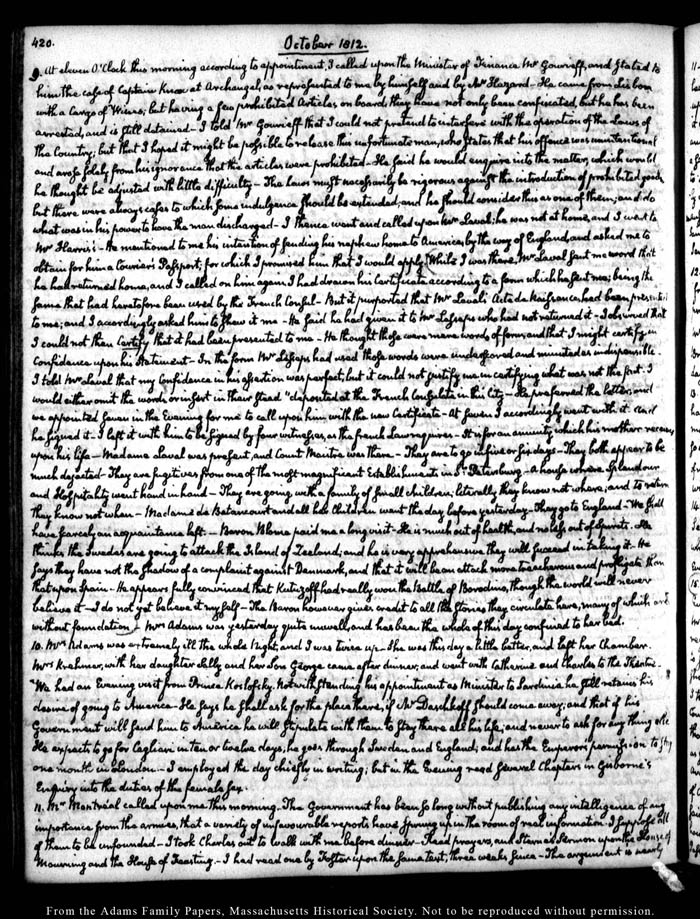 420.
October 1812.
9. At eleven O'Clock this morning according to appointment, I called upon the Minister of Finance Mr Gourieff, and stated to
him the case of Captain Knox at Archangel, as represented to me by himself and by Mr Hazard — He came from Lisbon
with a Cargo of Wines; but having a few prohibited Articles on board, they have not only been confiscated, but he has been
arrested, and is still detained — I told Mr Gourieff that I could not pretend to interfere with the operation of the Laws of
the Country; but that I hoped it might be possible to release this unfortunate man, who states that his offence was unintentional
and arose solely from his ignorance that the articles were prohibited — He said he would enquire into the matter, which would
he thought be adjusted with little difficulty — The Laws must necessarily be rigorous against the introduction of prohibited goods,
but there were always cases to which some indulgence should be extended, and he should consider this as one of them; and do
what was in his power to have the man discharged — I thence went and called upon Mr Laval; he was not at home, and I went to
Mr Harris's — He mentioned to me his intention of sending his nephew home to America, by the way of England, and asked me to
obtain for him a Courier's Passport; for which I promised him that I would apply. Whilst I was there, Mr Laval sent me word that
he had returned home, and I called on him again. I had drawn his Certificate according to a form which he sent me; being the
same that had heretofore been used by the French Consul — But it purported that Mr Laval's Acte de Naissance, had been presented
to me; and I accordingly asked him to shew it me — He said he had given it to Mr Lesseps who had not returned it — I observed that
I could not then certify that it had been presented to me — He thought those were mere words of form, and that I might certify in
Confidence upon his statement — In the form Mr Lesseps had used those words were underscored and minuted as indispensible.
I told Mr Laval that my Confidence in his assertion was perfect, but it could not justify me in certifying what was not the fact. I
would either omit the words or insert in their stead "deposited at the French Consulate in this City — He preferred the latter, and
we appointed seven in the Evening for me to call upon him with the new Certificate — At seven I accordingly went with it. and
he signed it — I left it with him to be signed by four witnesses, as the french Law requires — It is for an annuity which his mother receives
upon his life — Madame Laval was present, and Count Maistre was there — They are to go in five or six days — They both appear to be
much dejected — They are fugitives from one of the most magnificent Establishments in St. Petersburg — a house where Splendour
and Hospitality went hand in hand — They are going with a family of small children, literally they know not where, and to return
they know not when — Madame de Betancourt and all her Children went the day before yesterday — They go to England — We shall
have scarcely an acquaintance left — Baron Blome paid me a long visit — He is much out of health, and no less out of Spirits. He
thinks the Swedes are going to attack the Island of Zealand; and he is very apprehensive they will succeed in taking it. He
says they have not the shadow of a complaint against Denmark, and that it will be an attack more treacherous and profligate than
that upon Spain — He appears fully convinced that Kutuzoff had really won the Battle of Borodino, though the world will never
believe it — I do not yet believe it myself — The Baron however gives credit to all the stories they circulate here, many of which are
without foundation. Mrs Adams was yesterday quite unwell, and has been the whole of this day confined to her bed.
10. Mrs Adams was extremely ill the whole Night, and I was twice up — She was this day a little better, and left her Chamber.
Mrs Krehmer, with her daughter Sally and her Son George came after dinner; and went with Catherine and Charles to the Theatre —
We had an Evening visit from Prince Koslofsky. Notwithstanding his appointment as Minister to Sardinia he still retains his
desire of going to America — He says he shall ask for the place there, if Mr Daschkoff should come away; and that if his
Government will send him to America he will stipulate with them to stay there all his life, and never to ask for any thing else
He expects to go for Cagliari in ten or twelve days; he goes through Sweden and England; and has the Emperor's permission to stay
one month in London — I employed the day chiefly in writing; but in the Evening read several Chapters in Gisborne's
Enquiry into the duties of the female sex.
11. Mr Montréal called upon me this morning. The Government has been so long without publishing any intelligence of any
importance from the armies, that a variety of unfavourable reports have sprung up in the room of real information. I suppose all
of them to be unfounded — I took Charles out to walk with me before dinner — Read prayers, and Sterne's Sermon upon the House of
Mourning and the House of Feasting — I had read one by Foster upon the same text, three weeks since — The argument is nearly
From the Adams Family Papers, Massachusetts Historical Society. Not to be reproduced without permission.